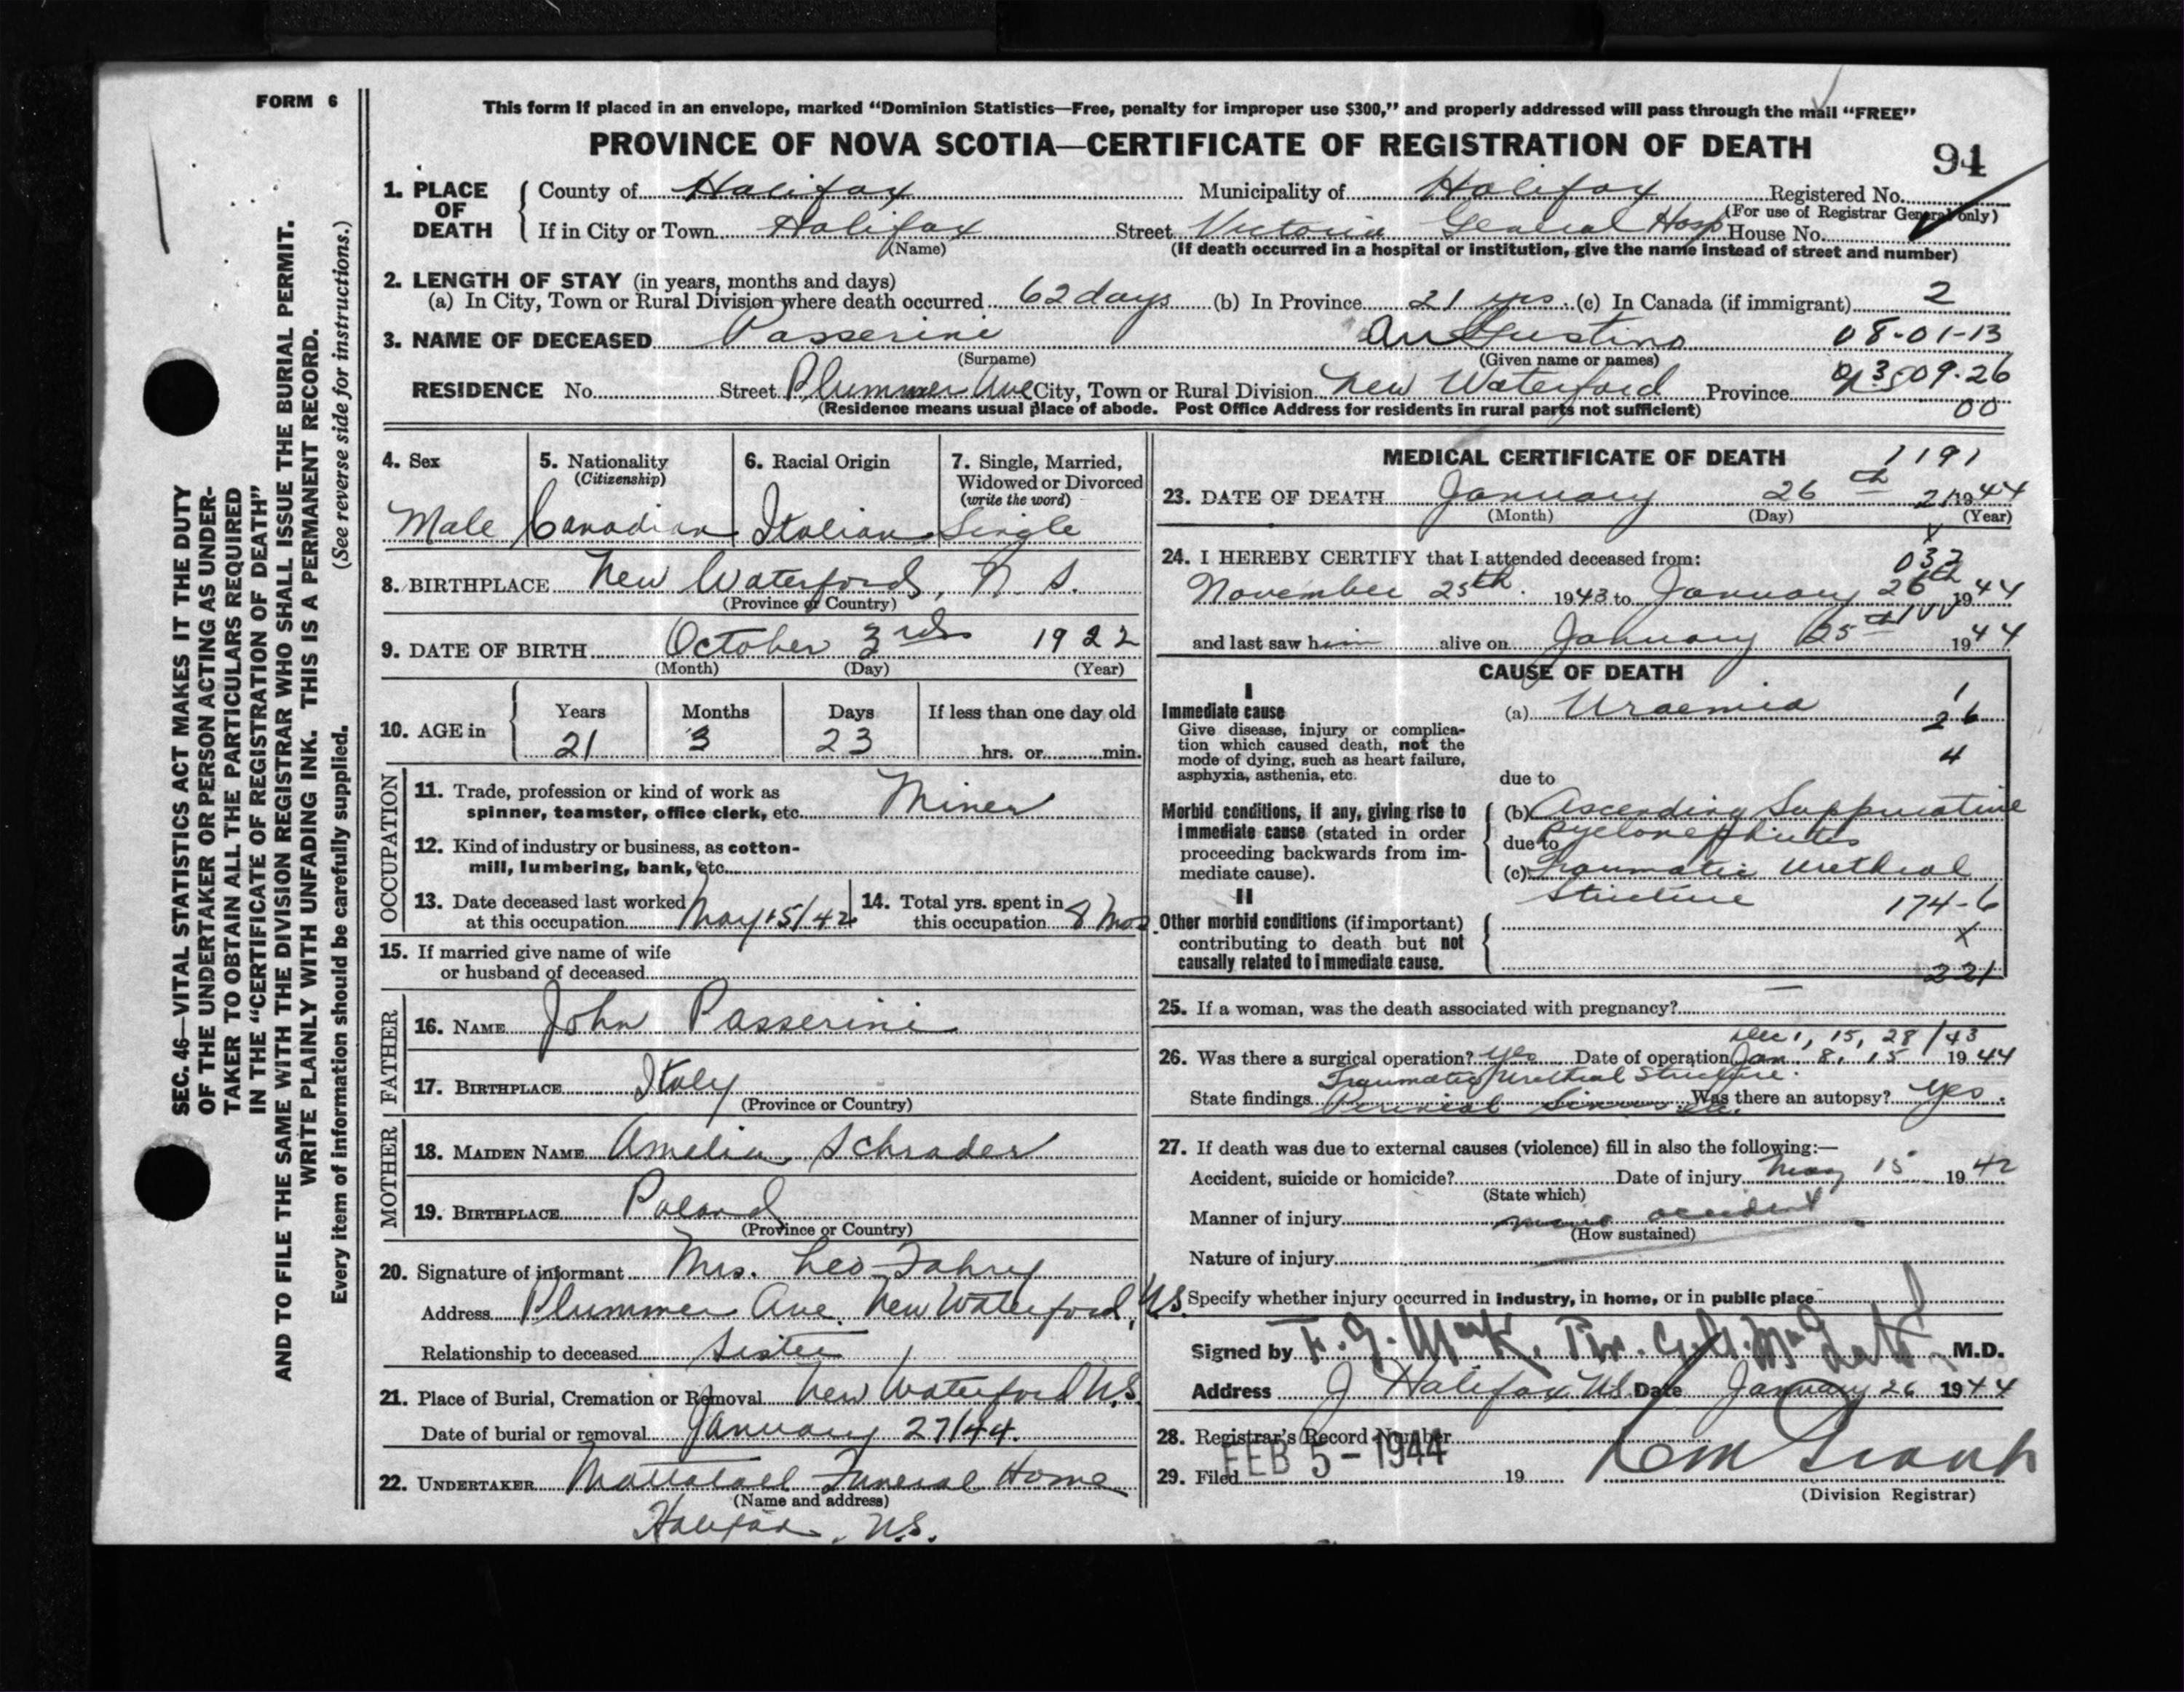 FORM 6
This form if placed in an envelope, marked “Dominion Statistics—Free, penalty for improper use $300,” and properly addressed will pass through the mail “FREE”
PROVINCE OF NOVA SCOTIA—CERTIFICATE OF REGISTRATION OF DEATH
94
1. PLACE OF DEATH
County of Halifax Municipality of Halifax Registered No.
(For use of Registrar General only)
If in City or Town Halifax Street Victoria General Hosp House No.
(Name) (If death occurred in a hospital or institution, give the name instead of street and number)
2. LENGTH OF STAY (in years, months and days)
(a) In City, Town or Rural Division where death occurred 62 days (b) In Province 21 yrs. (c) In Canada (if immigrant) 2
3. NAME OF DECEASED Passerini Augustino 08-01-13
(Surname) (Given name or names)
RESIDENCE No. Street Plummer Ave City, Town or Rural Division New Waterford Province 09-26
(Residence means usual place of abode. Post Office Address for residents in rural parts not sufficient) 00
4. Sex 5. Nationality 6. Racial Origin 7. Single, Married,
(Citizenship) Widowed or Divorced
(write the word)
Male Canadian Italian Single
8. BIRTHPLACE New Waterford, N. S.
(Province or Country)
9. DATE OF BIRTH October 3rd 1922
(Month) (Day) (Year)
10. AGE in Years Months Days If less than one day old
21 3 23 hrs. or min.
OCCUPATION
11. Trade, profession or kind of work as
spinner, teamster, office clerk, etc. Miner
12. Kind of industry or business, as cotton-
mill, lumbering, bank, etc.
13. Date deceased last worked
at this occupation May 15/42
14. Total yrs. spent in
this occupation 8 Mos
15. If married give name of wife
or husband of deceased
FATHER
16. NAME John Passerini
17. BIRTHPLACE Italy
(Province or Country)
MOTHER
18. MAIDEN NAME Amelia Schrader
19. BIRTHPLACE Poland
(Province or Country)
20. Signature of informant Mrs. Leo Fahey
Address Plummer Ave. New Waterford, N.S.
Relationship to deceased Sister
21. Place of Burial, Cremation or Removal New Waterford N.S.
Date of burial or removal January 27/44.
22. UNDERTAKER Mattatall Funeral Home
(Name and address)
Halifax, N.S.
MEDICAL CERTIFICATE OF DEATH 1191
23. DATE OF DEATH January 26th 1944
(Month) (Day) (Year)
24. I HEREBY CERTIFY that I attended deceased from: 032
November 25th 1943 to January 26th 1944
and last saw him alive on January 25th 1944
CAUSE OF DEATH
I
Immediate cause
Give disease, injury or complica-
tion which caused death, not the
mode of dying, such as heart failure,
asphyxia, asthenia, etc.
(a) Uraemia
1
26
4
due to
Morbid conditions, if any, giving rise to
immediate cause (stated in order
proceeding backwards from im-
mediate cause).
(b) Ascending Suppurative
Pyelonephritis
due to
(c) Traumatic Urethral
Stricture 174-6
X
II
Other morbid conditions (if important)
contributing to death but not
causally related to immediate cause.
221
25. If a woman, was the death associated with pregnancy?
Dec 1, 15, 28/43
26. Was there a surgical operation? Yes Date of operation Jan 8, 15 1944
Traumatic Urethral Stricture.
State findings Was there an autopsy? Yes.
27. If death was due to external causes (violence) fill in also the following:—
Accident, suicide or homicide? Date of injury May 15 1942
(State which)
Manner of injury mine accident
(How sustained)
Nature of injury
Specify whether injury occurred in industry, in home, or in public place
Signed by M.D.
Address Halifax, N.S. Date January 26 1944
28. Registrar's Record Number
FEB 5-1944
29. Filed 19
(Division Registrar)
SEC. 46—VITAL STATISTICS ACT MAKES IT THE DUTY
OF THE UNDERTAKER OR PERSON ACTING AS UNDER-
TAKER TO OBTAIN ALL THE PARTICULARS REQUIRED
IN THE “CERTIFICATE OF REGISTRATION OF DEATH”
AND TO FILE THE SAME WITH THE DIVISION REGISTRAR WHO SHALL ISSUE THE BURIAL PERMIT.
WRITE PLAINLY WITH UNFADING INK. THIS IS A PERMANENT RECORD.
Every item of information should be carefully supplied. (See reverse side for instructions.)